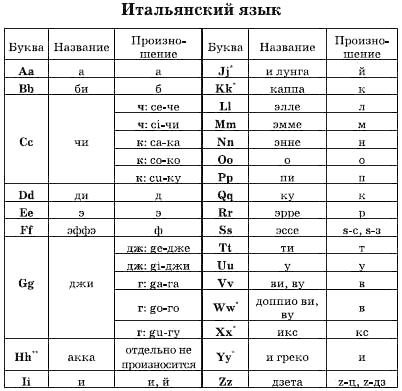 Итальянский язык
Буква Название Произно-шение Буква Название Произно-шение
Aa а а Jj* и лунга й
Bb би б Kk* каппа к
Cc чи ч: ce-че Ll элле л
ч: ci-чи Mm эмме м
к: ca-ка Nn энне н
к: co-ко Oo о о
к: cu-ку Pp пи п
Dd ди д Qq ку к
Ee э э Rr эрре р
Ff эффэ ф Ss эссе s-с, s-з
Gg джи дж: ge-дже Tt ти т
дж: gi-джи Uu у у
г: ga-га Vv ви, ву в
г: go-го Ww* доппио ви, ву в
г: gu-гу Xx* икс кс
Hh** акка отдельно не произносится Yy* и греко и
Ii и и, й Zz дзета z-ц, z-дз